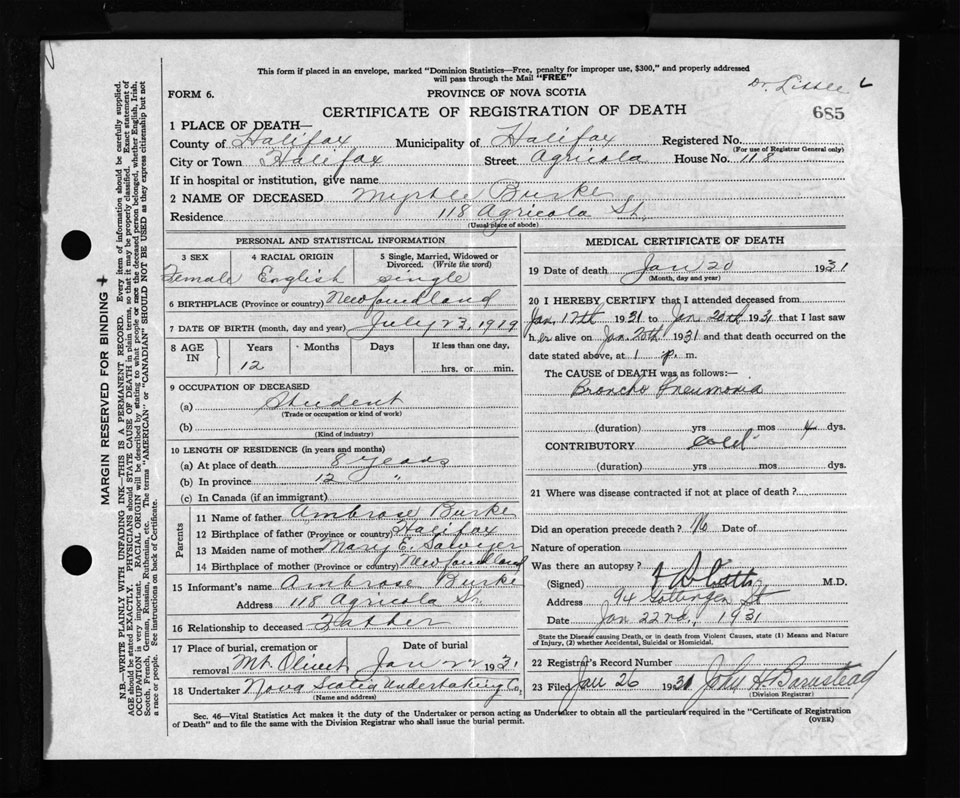 This form if placed in an envelope, marked "Dominion Statistics—Free, penalty for improper use, $300," and properly addressed
will pass through the Mail "FREE"
Dr. Little
FORM 6.
PROVINCE OF NOVA SCOTIA
685
CERTIFICATE OF REGISTRATION OF DEATH
1 PLACE OF DEATH—
County of Halifax Municipality of Halifax Registered No.
(For use of Registrar General only)
City or Town Halifax Street Agricola House No. 118
If in hospital or institution, give name
2 NAME OF DECEASED Myrtle Burke
Residence 118 Agricola St.
(Usual place of abode)
PERSONAL AND STATISTICAL INFORMATION
3 SEX 4 RACIAL ORIGIN 5 Single, Married, Widowed or
Divorced. (Write the word)
Female English Single
6 BIRTHPLACE (Province or country) Newfoundland
7 DATE OF BIRTH (month, day and year) July 23, 1919
8 AGE IN Years Months Days If less than one day,
12 hrs. or min.
9 OCCUPATION OF DECEASED
(a) Student
(Trade or occupation or kind of work)
(b)
(Kind of industry)
10 LENGTH OF RESIDENCE (in years and months)
(a) At place of death 8 years
(b) In province 12 "
(c) In Canada (if an immigrant)
Parents
11 Name of father Ambrose Burke
12 Birthplace of father (Province or country) Halifax
13 Maiden name of mother Mary E. Sawyer
14 Birthplace of mother (Province or country) Newfoundland
15 Informant's name Ambrose Burke
Address 118 Agricola St.
16 Relationship to deceased Father
17 Place of burial, cremation or Date of burial
removal Mt. Olivet Jan 22 1931
18 Undertaker Nova Scotia Undertaking Co.
(Name and address)
MEDICAL CERTIFICATE OF DEATH
19 Date of death Jan 20 1931
(Month, day and year)
20 I HEREBY CERTIFY that I attended deceased from
Jan. 17th 1931 to Jan 20th 1931 that I last saw
her alive on Jan. 20th 1931 and that death occurred on the
date stated above, at 1 p. m.
The CAUSE of DEATH was as follows:
Broncho Pneumonia
(duration) yrs mos 4 dys.
CONTRIBUTORY Cold
(duration) yrs mos dys.
21 Where was disease contracted if not at place of death?
Did an operation precede death? No Date of
Nature of operation
Was there an autopsy?
(Signed) M.D.
Address 94 Gottingen St
Date Jan 22nd, 1931
State the Disease causing Death, or in death from Violent Causes, state (1) Means and Nature
of Injury, (2) whether Accidental, Suicidal or Homicidal.
22 Registrar's Record Number
23 Filed Jan 26 1931 John H Barnstead
(Division Registrar)
Sec. 46—Vital Statistics Act makes it the duty of the Undertaker or person acting as Undertaker to obtain all the particulars required in the "Certificate of Registration
of Death" and to file the same with the Division Registrar who shall issue the burial permit.
(OVER)
MARGIN RESERVED FOR BINDING
N.B.—WRITE PLAINLY WITH UNFADING INK—THIS IS A PERMANENT RECORD. Every item of information should be carefully supplied.
AGE should be stated EXACTLY. PHYSICIANS should STATE CAUSE OF DEATH in plain terms, so that it may be properly classified. Exact statement of
OCCUPATION is very important. RACIAL ORIGIN will be described by stating to what people or race the deceased person belonged, whether English, Irish,
Scotch, French, German, Russian, Ruthenian, etc. The terms "AMERICAN" or "CANADIAN" SHOULD NOT BE USED as they express citizenship but not
a race or people. See instructions on back of Certificate.